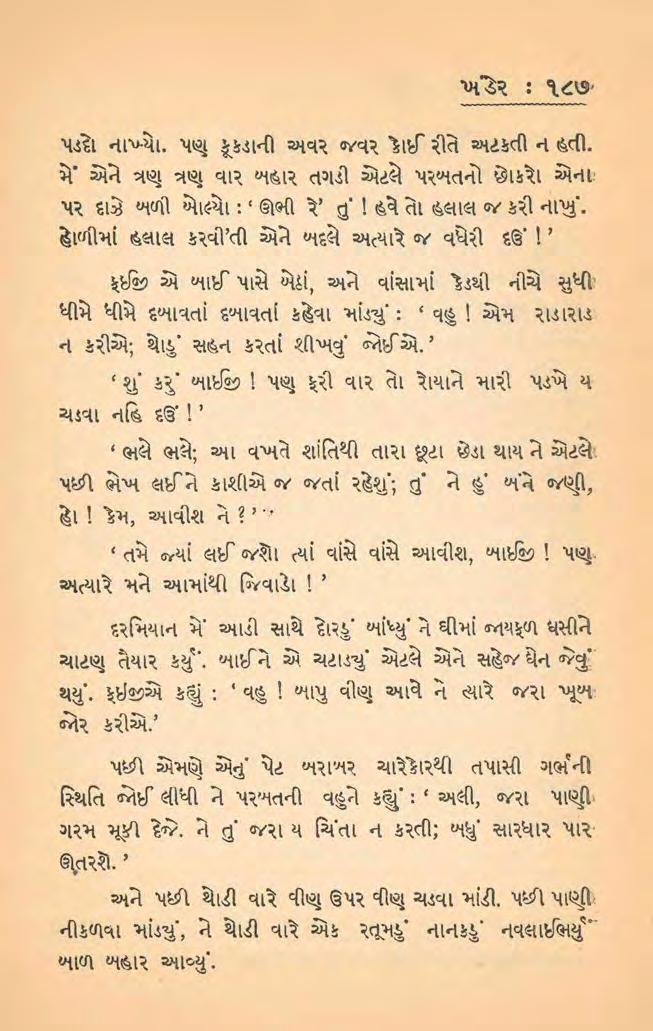 ખંડેર : ૧૮૭
પડદો નાખ્યો. પણ કૂકડાની અવર જવર કોઈ રીતે અટકતી ન હતી.
મેં એને ત્રણ ત્રણ વાર બહાર તગડી એટલે પરબતનો છોકરો એના
પર દાઝે બળી બોલ્યો : ‘ ઊભી રે’ તું ! હવે તો હલાલ જ કરી નાખું.
હોળીમાં હલાલ કરવી’તી એને બદલે અત્યારે જ વધેરી દઉં ! ’
ફઈજી એ બાઈ પાસે બેઠાં, અને વાંસામાં કેડથી નીચે સુધી
ધીમે ધીમે દબાવતાં દબાવતાં કહેવા માંડ્યું : ‘ વહુ ! એમ રાડારાડ
ન કરીએ; થોડું સહન કરતાં શીખવું જોઈએ. ’
‘ શું કરું બાઈજી ! પણ ફરી વાર તો રોયાને મારી પડખે ય
ચડવા નહિ દઉં ! ’
‘ ભલે ભલે; આ વખતે શાંતિથી તારા છૂટા છેડા થાય ને એટલે
પછી ભેખ લઈને કાશીએ જ જતાં રહેશું; તું ને હું બંને જણી,
હો ! કેમ, આવીશ ને ? ’
‘ તમે જ્યાં લઈ જશો ત્યાં વાંસે વાંસે આવીશ, બાઈજી ! પણ
અત્યારે મને આમાંથી જિવાડો ! ’
દરમિયાન મેં આડી સાથે દોરડું બાંધ્યું ને ઘીમાં જાયફળ ઘસીને
ચાટણ તૈયાર કર્યું. બાઈને એ ચટાડ્યું એટલે એને સહેજ ઘેન જેવું
થયું. ફઇજીએ કહ્યું : ‘ વહુ ! બાપુ વીણ આવે ને ત્યારે જરા ખૂબ
જોર કરીએ.’
પછી એમણે એનું પેટ બરાબર ચારેકોરથી તપાસી ગર્ભની
સ્થિતિ જોઈ લીધી ને પરબતની વહુને કહ્યું : ‘ અલી, જરા પાણી
ગરમ મૂકી દેજે. ને તું જરા ય ચિંતા ન કરતી; બધું સારધાર પાર
ઊતરશે. ’
અને પછી થોડી વારે વીણ ઉપર વીણ ચડવા માંડી. પછી પાણી
નીકળવા માંડ્યું, ને થોડી વારે એક રતૂમડું નાનકડું નવલાઈભર્યું
બાળ બહાર આવ્યું.